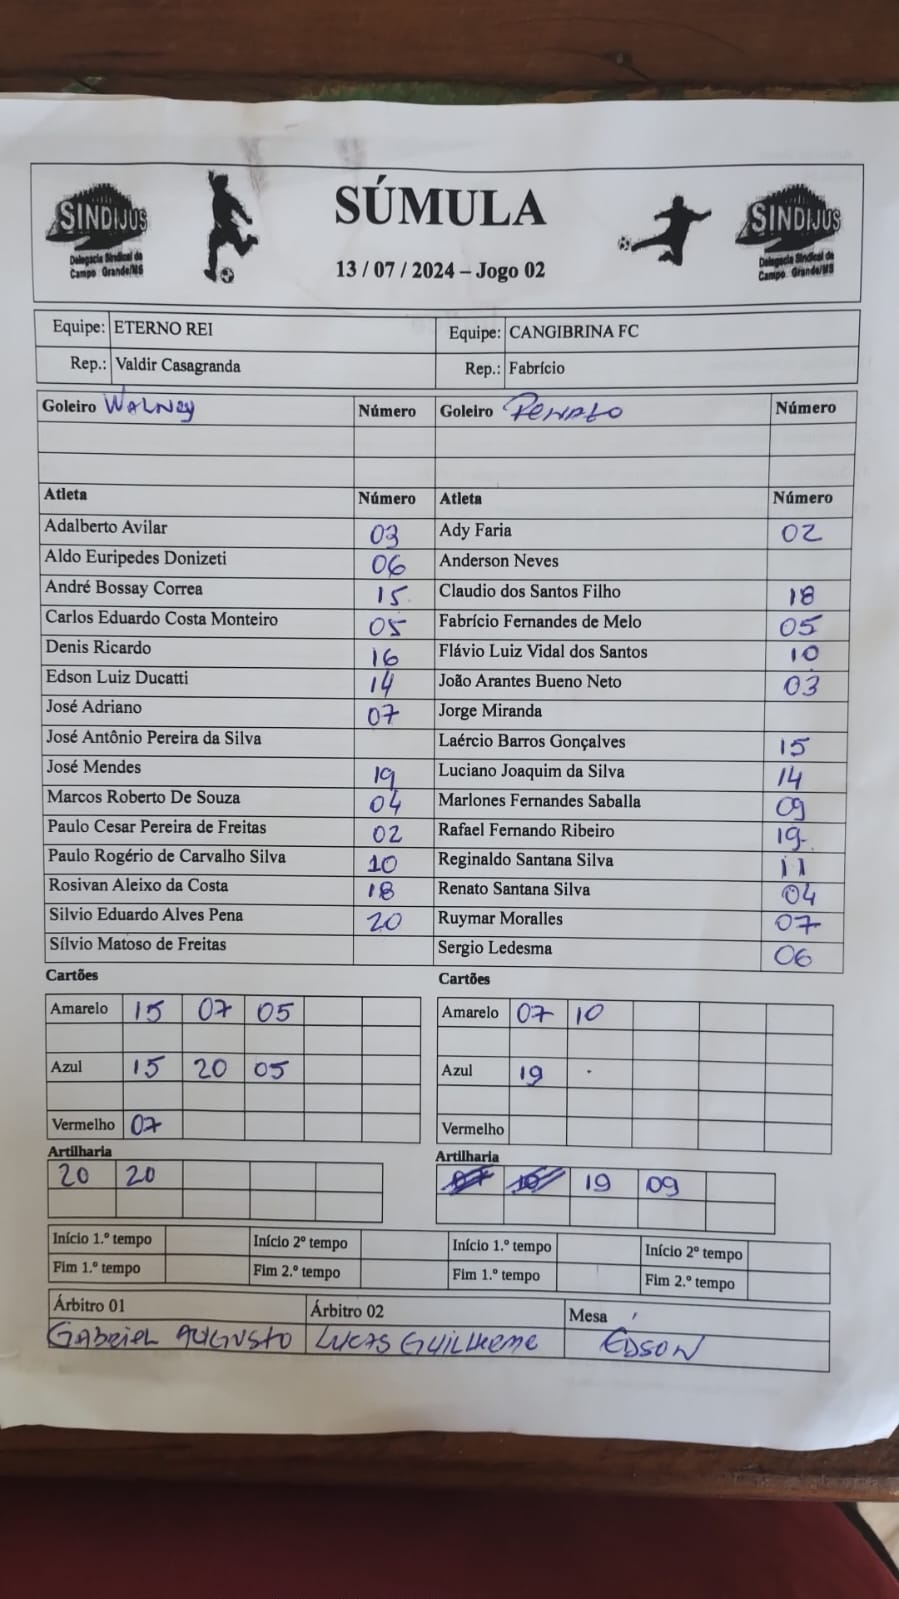 SÚMULA
SINDIJUS
Delegacia Sindical de
Campo Grande/MS
SINDIJUS
Delegacia Sindical de
Campo Grande/MS
13 / 07 / 2024 – Jogo 02
Equipe: ETERNO REI Equipe: CANGIBRINA FC
Rep.: Valdir Casagranda Rep.: Fabrício
Goleiro WALNEY Número Goleiro RENATO Número
Atleta Número Atleta Número
Adalberto Avilar 03 Ady Faria 02
Aldo Euripedes Donizeti 06 Anderson Neves
André Bossay Correa 15 Claudio dos Santos Filho 18
Carlos Eduardo Costa Monteiro 05 Fabrício Fernandes de Melo 05
Denis Ricardo 16 Flávio Luiz Vidal dos Santos 10
Edson Luiz Ducatti 14 João Arantes Bueno Neto 03
José Adriano 07 Jorge Miranda
José Antônio Pereira da Silva Laércio Barros Gonçalves 15
José Mendes 19 Luciano Joaquim da Silva 14
Marcos Roberto De Souza 04 Marlones Fernandes Saballa 09
Paulo Cesar Pereira de Freitas 02 Rafael Fernando Ribeiro 19
Paulo Rogério de Carvalho Silva 10 Reginaldo Santana Silva 11
Rosivan Aleixo da Costa 18 Renato Santana Silva 04
Silvio Eduardo Alves Pena 20 Ruymar Moralles 07
Sílvio Matoso de Freitas Sergio Ledesma 06
Cartões Cartões
Amarelo 15 07 05 Amarelo 07 10
Azul 15 20 05 Azul 19
Vermelho 07 Vermelho
Artilharia Artilharia
20 20 07 10 19 09
Início 1.º tempo Início 2º tempo Início 1.º tempo Início 2º tempo
Fim 1.º tempo Fim 2.º tempo Fim 1.º tempo Fim 2.º tempo
Árbitro 01 Árbitro 02 Mesa
GABRIEL AUGUSTO LUCAS GUILHERME EDSON